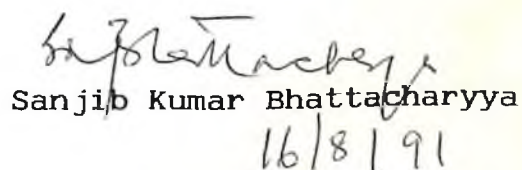 S Bhattacharyya
Sanjib Kumar Bhattacharyya
16/8/91